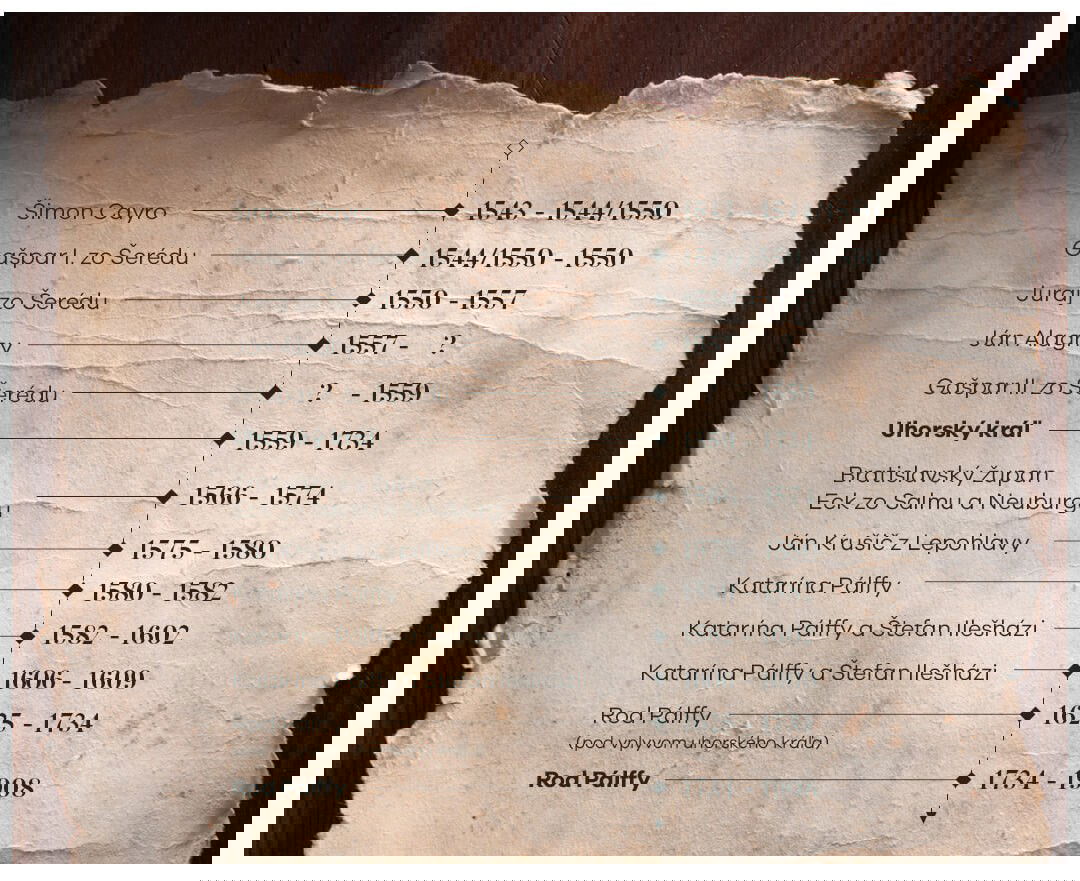 Šimon Cayro 1543 - 1544/1550
Gašpar I. zo Šerédu 1544/1550 - 1550
Juraj zo Šerédu 1550 - 1557
Ján Alagovy 1557 - ?
Gašpar II. zo Šerédu ? - 1559
Uhorský kráľ 1559 - 1734
Bratislavský župan
Eck zo Salmu a Neuburgu 1566 - 1574
Ján Krušič z Lepohlavy 1575 - 1580
Katarína Pálffy 1580 - 1582
Katarína Pálffy a Štefan Ilešházi 1582 - 1602
Katarína Pálffy a Štefan Ilešházi 1606 - 1609
Rod Pálffy 1625 - 1734
(pod vplyvom uhorského kráľa)
Rod Pálffy 1734 - 1908